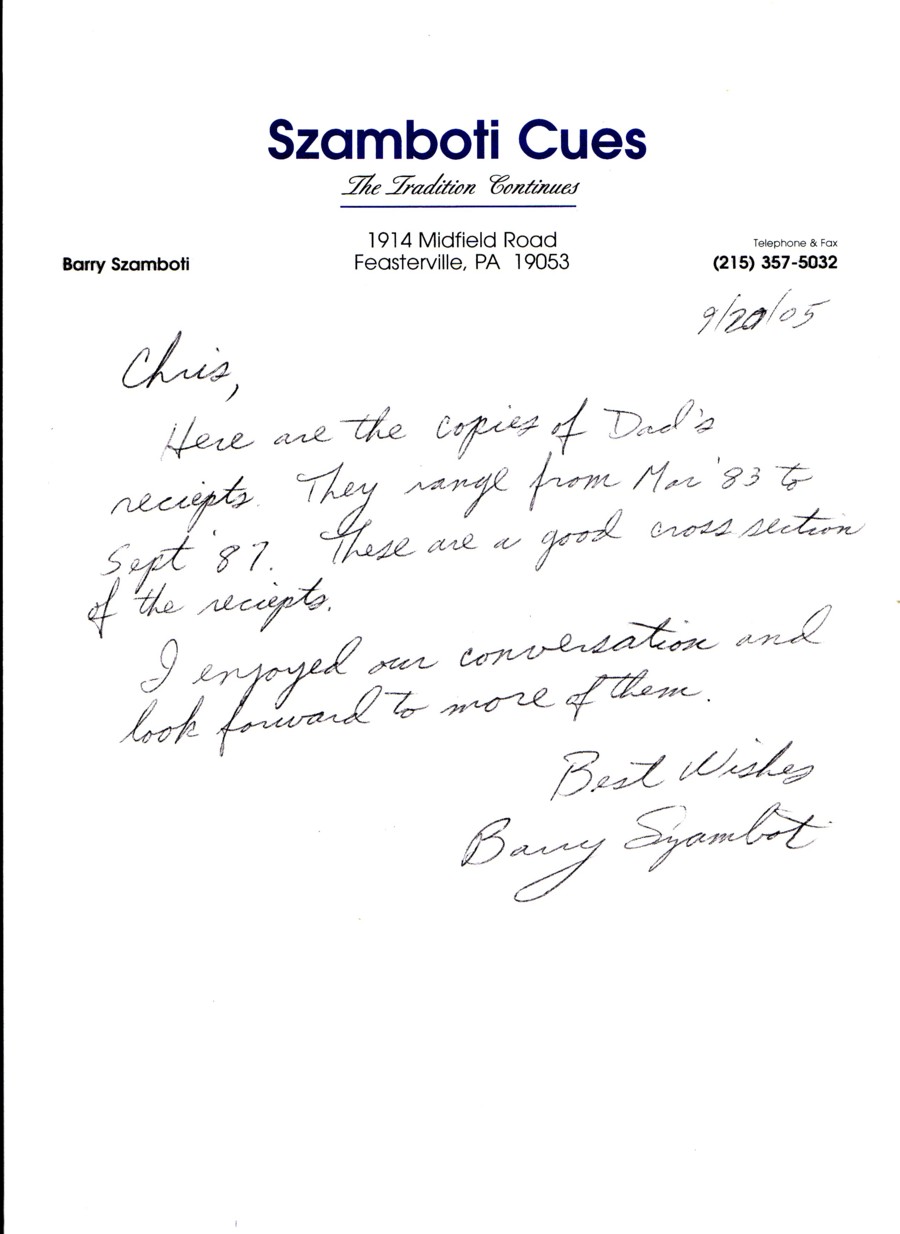 Szamboti Cues
The Tradition Continues
1914 Midfield Road
Feasterville, PA 19053
Barry Szamboti
Telephone & Fax
(215) 357-5032
9/20/05
Chris,
Here are the copies of Dad's
reciepts. They range from Mar '83 to
Sept '87. These are a good cross section
of the reciepts.
I enjoyed our conversation and
look forward to more of them.
Best Wishes
Barry Szamboti